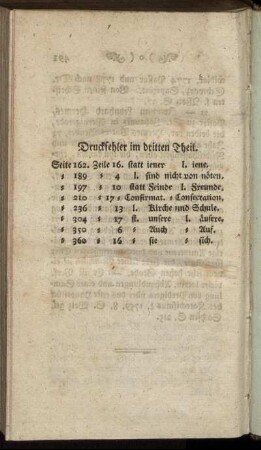 Druckfehler im dritten Theil.
Seite 162. Zeile 16. statt jener l. jene.
⸗ 189 ⸗ 4 l. sind nicht von nöten.
⸗ 197 ⸗ 10 statt Feinde l. Freunde.
⸗ 210 ⸗ 17 ⸗ Confirmat. ⸗ Conservation.
⸗ 236 ⸗ 13 l. Kirche und Schule.
⸗ 304 ⸗ 17 st. unsere l. äusere.
⸗ 350 ⸗ 6 ⸗ Auch ⸗ Auf.
⸗ 360 ⸗ 16 ⸗ sie ⸗ sich.